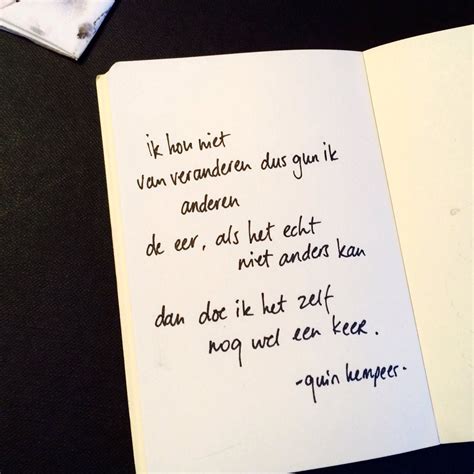 ik hou niet
van veranderen dus gun ik
anderen
de eer, als het echt
niet anders kan
dan doe ik het zelf
nog wel een keer.
-quin kempeer-